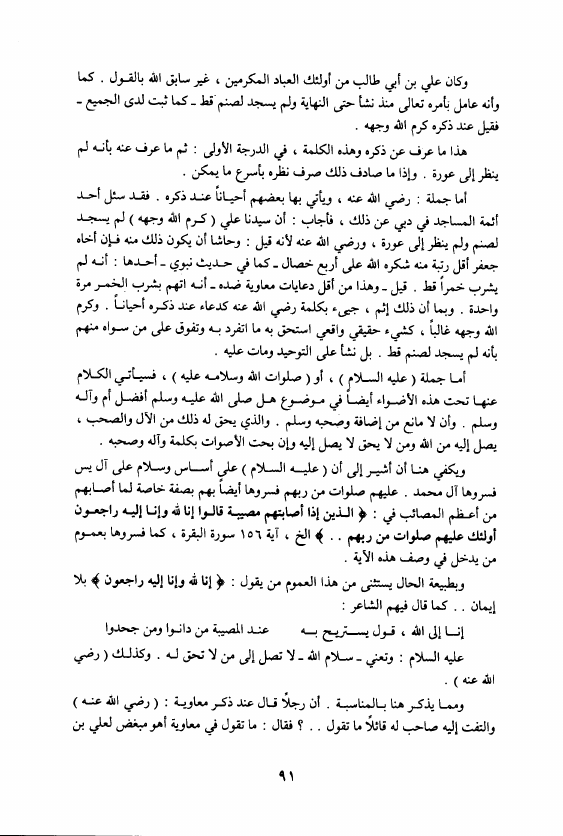 وكان علي بن أبي طالب من أولئك العباد المكرمين ، غير سابق الله بالقول . كما
وأنه عامل بأمره تعالى منذ نشأ حتى النهاية ولم يسجد لصنم قط ـ كما ثبت لدى الجميع ـ
فقيل عند ذكره كرم الله وجهه .
هذا ما عرف عن ذكره وهذه الكلمة ، في الدرجة الأولى : ثم ما عرف عنه بأنه لم
ينظر إلى عورة . وإذا ما صادف ذلك صرف نظره بأسرع ما يمكن .
أما جملة : رضي الله عنه ، ويأتي بها بعضهم أحياناً عند ذكره . فقد سئل أحد
أئمة المساجد في دبي عن ذلك ، فأجاب : أن سيدنا علي ( كرم الله وجهه ) لم يسجد
لصنم ولم ينظر إلى عورة ، ورضي الله عنه لأنه قيل : وحاشا أن يكون ذلك منه فإن أخاه
جعفر أقل رتبة منه شكره الله على أربع خصال ـ كما في حديث نبوي ـ أحدها : أنه لم
يشرب خمراً قط . قيل ـ وهذا من أقل دعايات معاوية ضده ـ أنه اتهم بشرب الخمر مرة
واحدة . وبما أن ذلك إثم ، جيء بكلمة رضي الله عنه كدعاء عند ذكره أحياناً . وكرم
الله وجهه غالباً ، كشيء حقيقي واقعي استحق به ما اتفرد به وتفوق على من سواه منهم
بأنه لم يسجد لصنم قط . بل نشأ على التوحيد ومات عليه .
أما جملة ( عليه السلام ) ، أو ( صلوات الله وسلامه عليه ) ، فسيأتي الكلام
عنها تحت هذه الأضواء أيضاً في موضوع هل صلى الله عليه وسلم أفضل أم وآله
وسلم . وأن لا مانع من إضافة وصحبه وسلم . والذي يحق له ذلك من الآل والصحب ،
يصل إليه من الله ومن لا يحق لا يصل إليه وإن بحت الأصوات بكلمة وآله وصحبه .
ويكفي هنا أن أشير إلى أن ( عليه السلام ) على أساس وسلام على آل يس
فسروها آل محمد . عليهم صلوات من ربهم فسروها أيضاً بهم بصفة خاصة لما أصابهم
من أعظم المصائب في : ﴿ الذين إذا أصابتهم مصيبة قالوا إنا لله وإنا إليه راجعون
أولئك عليهم صلوات من ربهم . . ﴾ الخ ، آية ١٥٦ سورة البقرة ، كما فسروها بعموم
من يدخل في وصف هذه الآية .
وبطبيعة الحال يستثنى من هذا العموم من يقول : ﴿ إنا لله وإنا إليه راجعون ﴾ بلا
إيمان . . كما قال فيهم الشاعر :
إنا إلى الله ، قول يستريح به عند المصيبة من دانوا ومن جحدوا
عليه السلام : وتعني ـ سلام الله ـ لا تصل إلى من لا تحق له . وكذلك ( رضي
الله عنه ) .
ومما يذكر هنا بالمناسبة . أن رجلاً قال عند ذكر معاوية : ( رضي الله عنه )
والتفت إليه صاحب له قائلاً ما تقول . . ؟ فقال : ما تقول في معاوية أهو مبغض لعلي بن
٩١